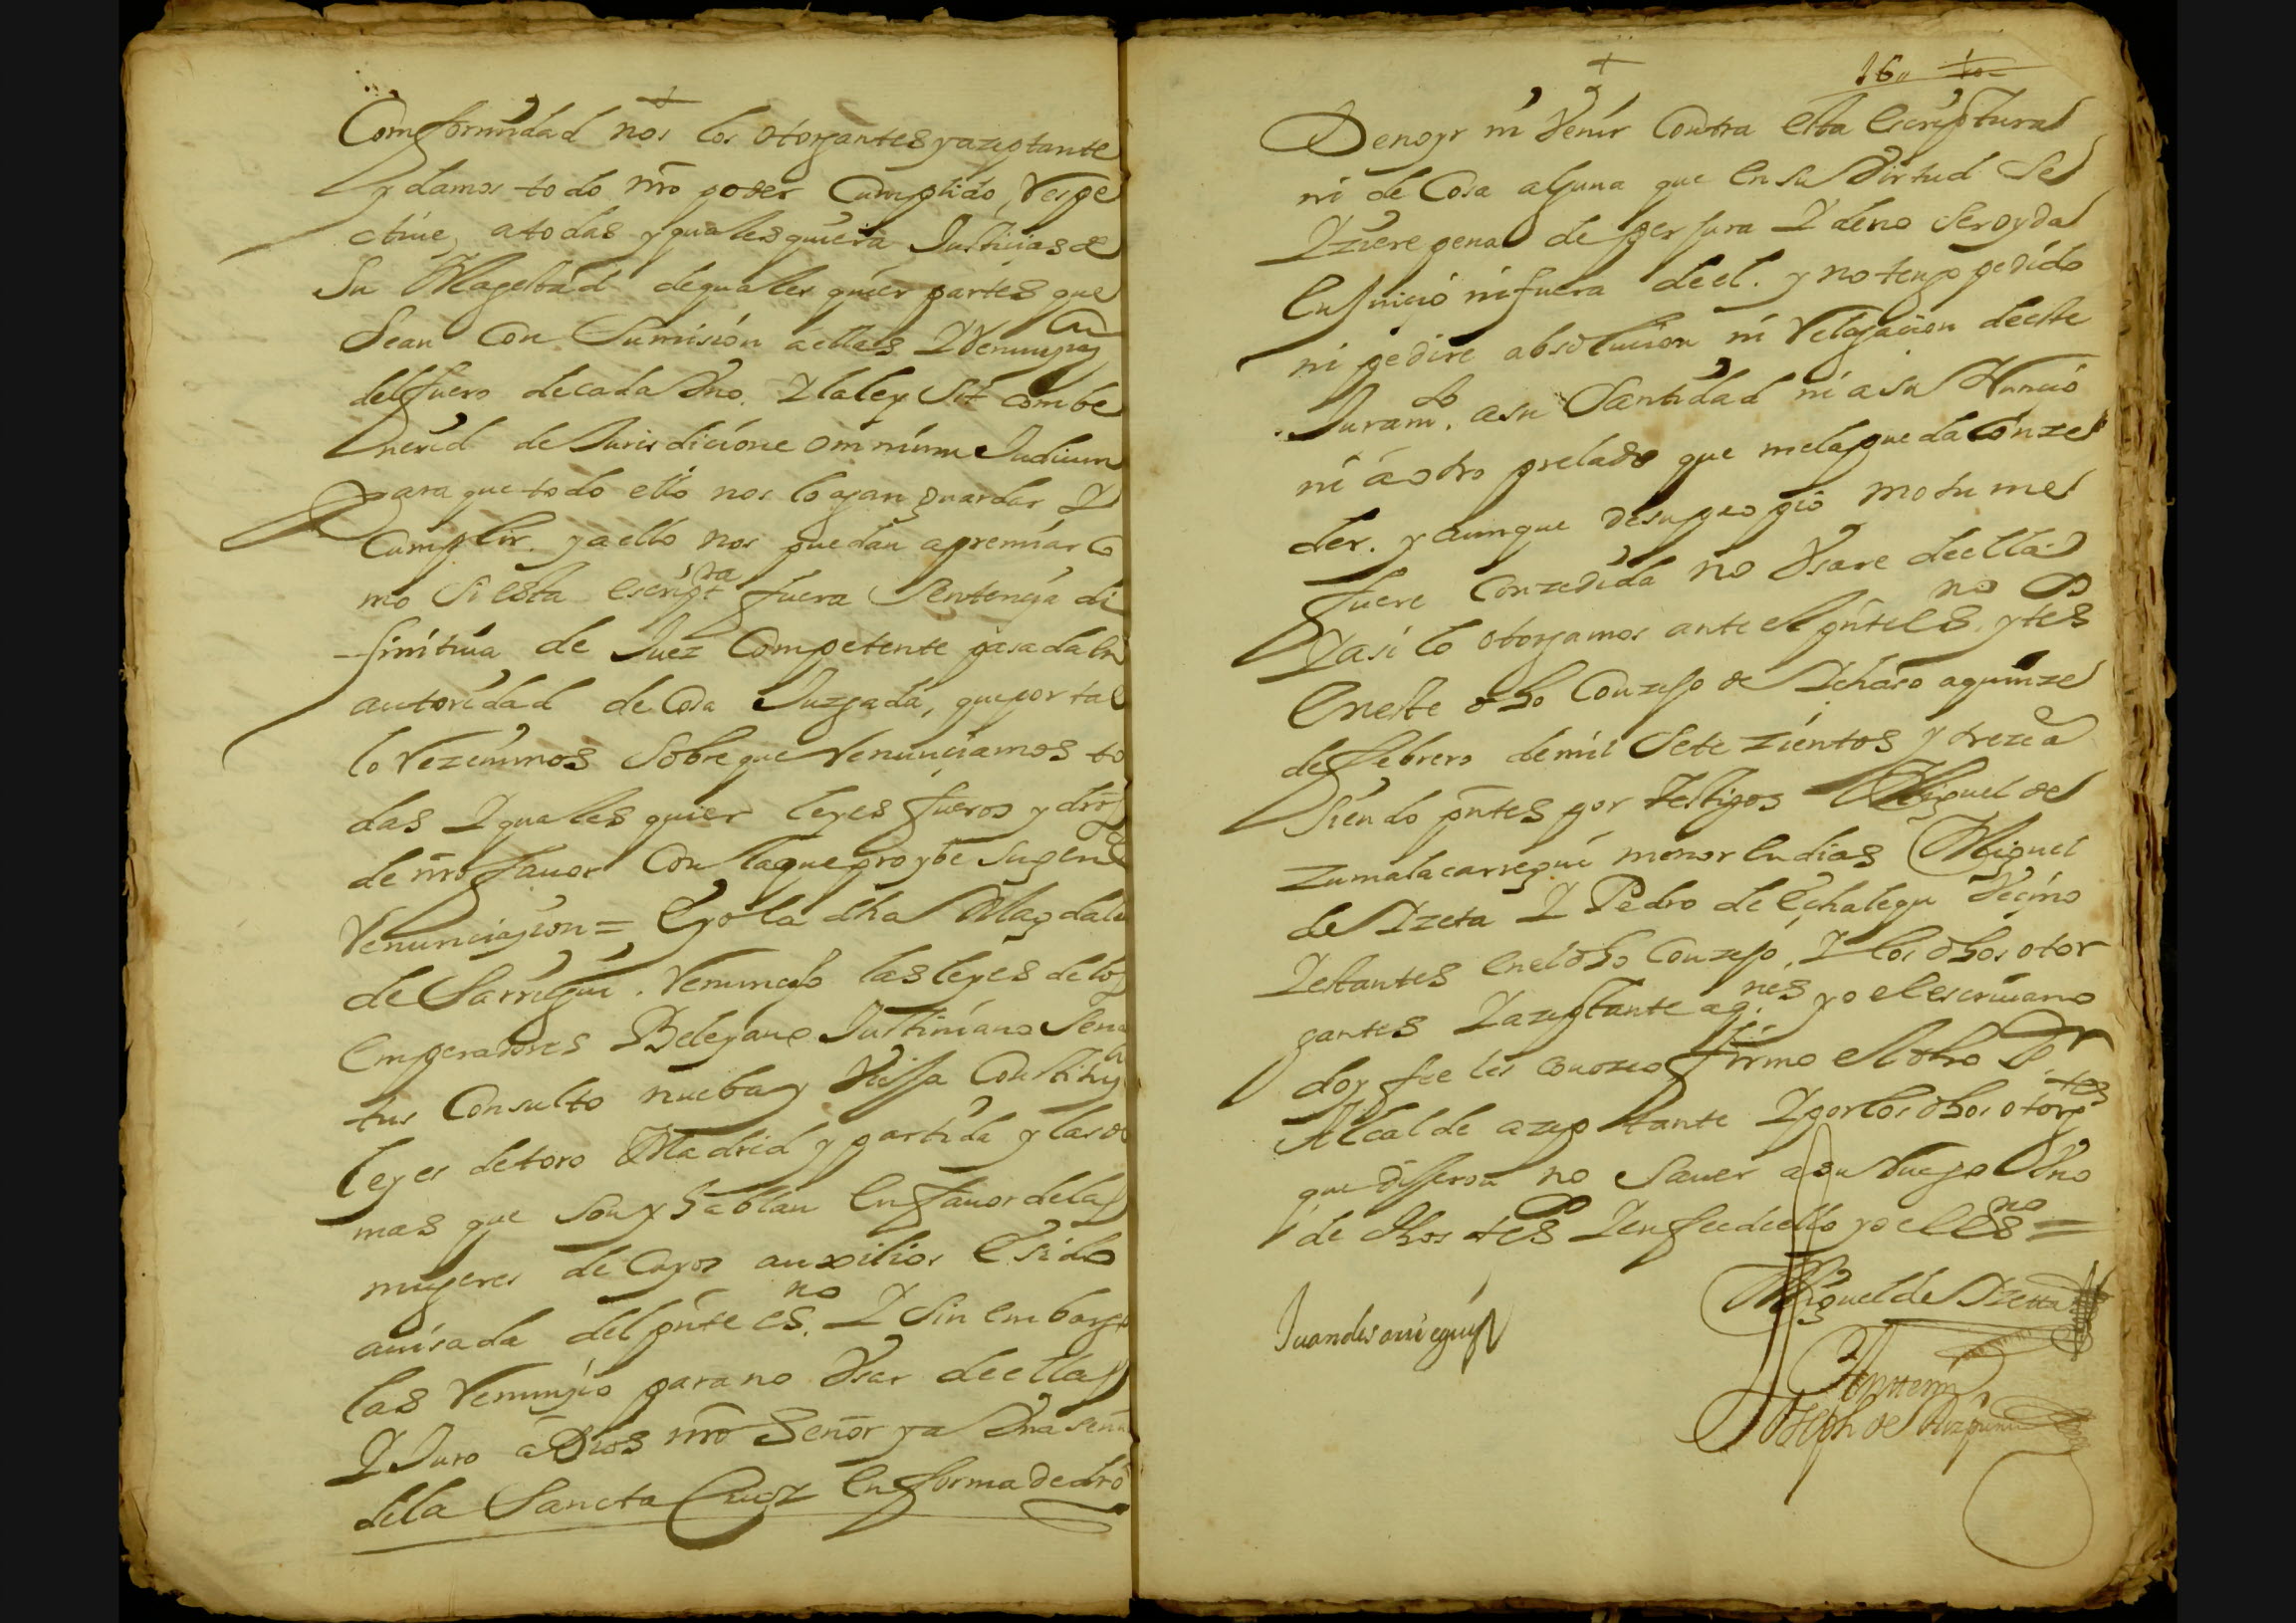 Comformidad nos los otorgantes y azeptante
y damos todo nro poder Cumplido, Respe
ctiue, a todas y quales quiera Justicias de
Su Magestad de quales quier partes que
Sean Con Sumision a ellas Y Renunçiaçon
del fuero de cada Vno. Y la ley Sit combe
nerid de Jurisdicione omnium Judicum
para que todo ello nos lo agan guardar Y
Cumplir. y a ello nos puedan apremiar Co
mo Si esta escriptra fuera Sentençia di
finitiua de Juez Competente pasada en
autoridad de Cosa Juzgada, que por tal
lo Rezeuimos Sobre que Renunciamos to
das Y quales quier leyes fueros y dros
de nro fauor Con la que proybe Su genl
Renunciaçion = E yo la dha Magdalena
de Sarrigui. Renunçio las leyes de los
Emperadores Beleyano Justiniano Sena
tus Consulto nueba y Viejta Constituçon
leyes de toro Madrid y partida y las de
mas que Son y hablan En fauor de las
mugeres de Cuyos auxilios E sido
auisada del pnte esno. Y Sin embargo
las Renunçio para no Vsar de ellas
Y Juro a Dios nro Señor y a Vna señal
de la Sancta Cruz En forma de dro
16
De no yr ni Venir Contra esta Escriptura
ni de Cosa alguna que en su Virtud Se
Yziere pena de perjura Y de no Ser oyda
En Juicio ni fuera de el. y no tengo pedido
ni pedire absolucion ni Relajacion de este
Juramto. a su Santidad ni a su Nuncio
ni a otro prelado que me la pueda Conze
der. y aunque de su propio motu me
fuere Conzedida no Vsare de ella
Y asi lo otorgamos ante el pnte esno y tesgos
En este dho Conzejo de Ychaso a quinze
de febrero de mil Sete zientos y treze a
Siendo pntes por testigos Miguel de
Zumalacarregui menor en dias Miguel
de Yzeta Y Pedro de Echalequ Vecino
Y estantes en el dho Conzejo, Y los dhos otor
gantes Y azeptante a qnes yo el escriuano
doy fee les conozco firmo el dho Sr
Alcalde azeptante Y por los dhos otorgtes
que dijeron no Sauer a su Ruego Vno
de dhos tesgos Y en fee de ello yo el Esno =
Miguel de Yzetta
Juan de sarriegui
Antte mi
Joseph de